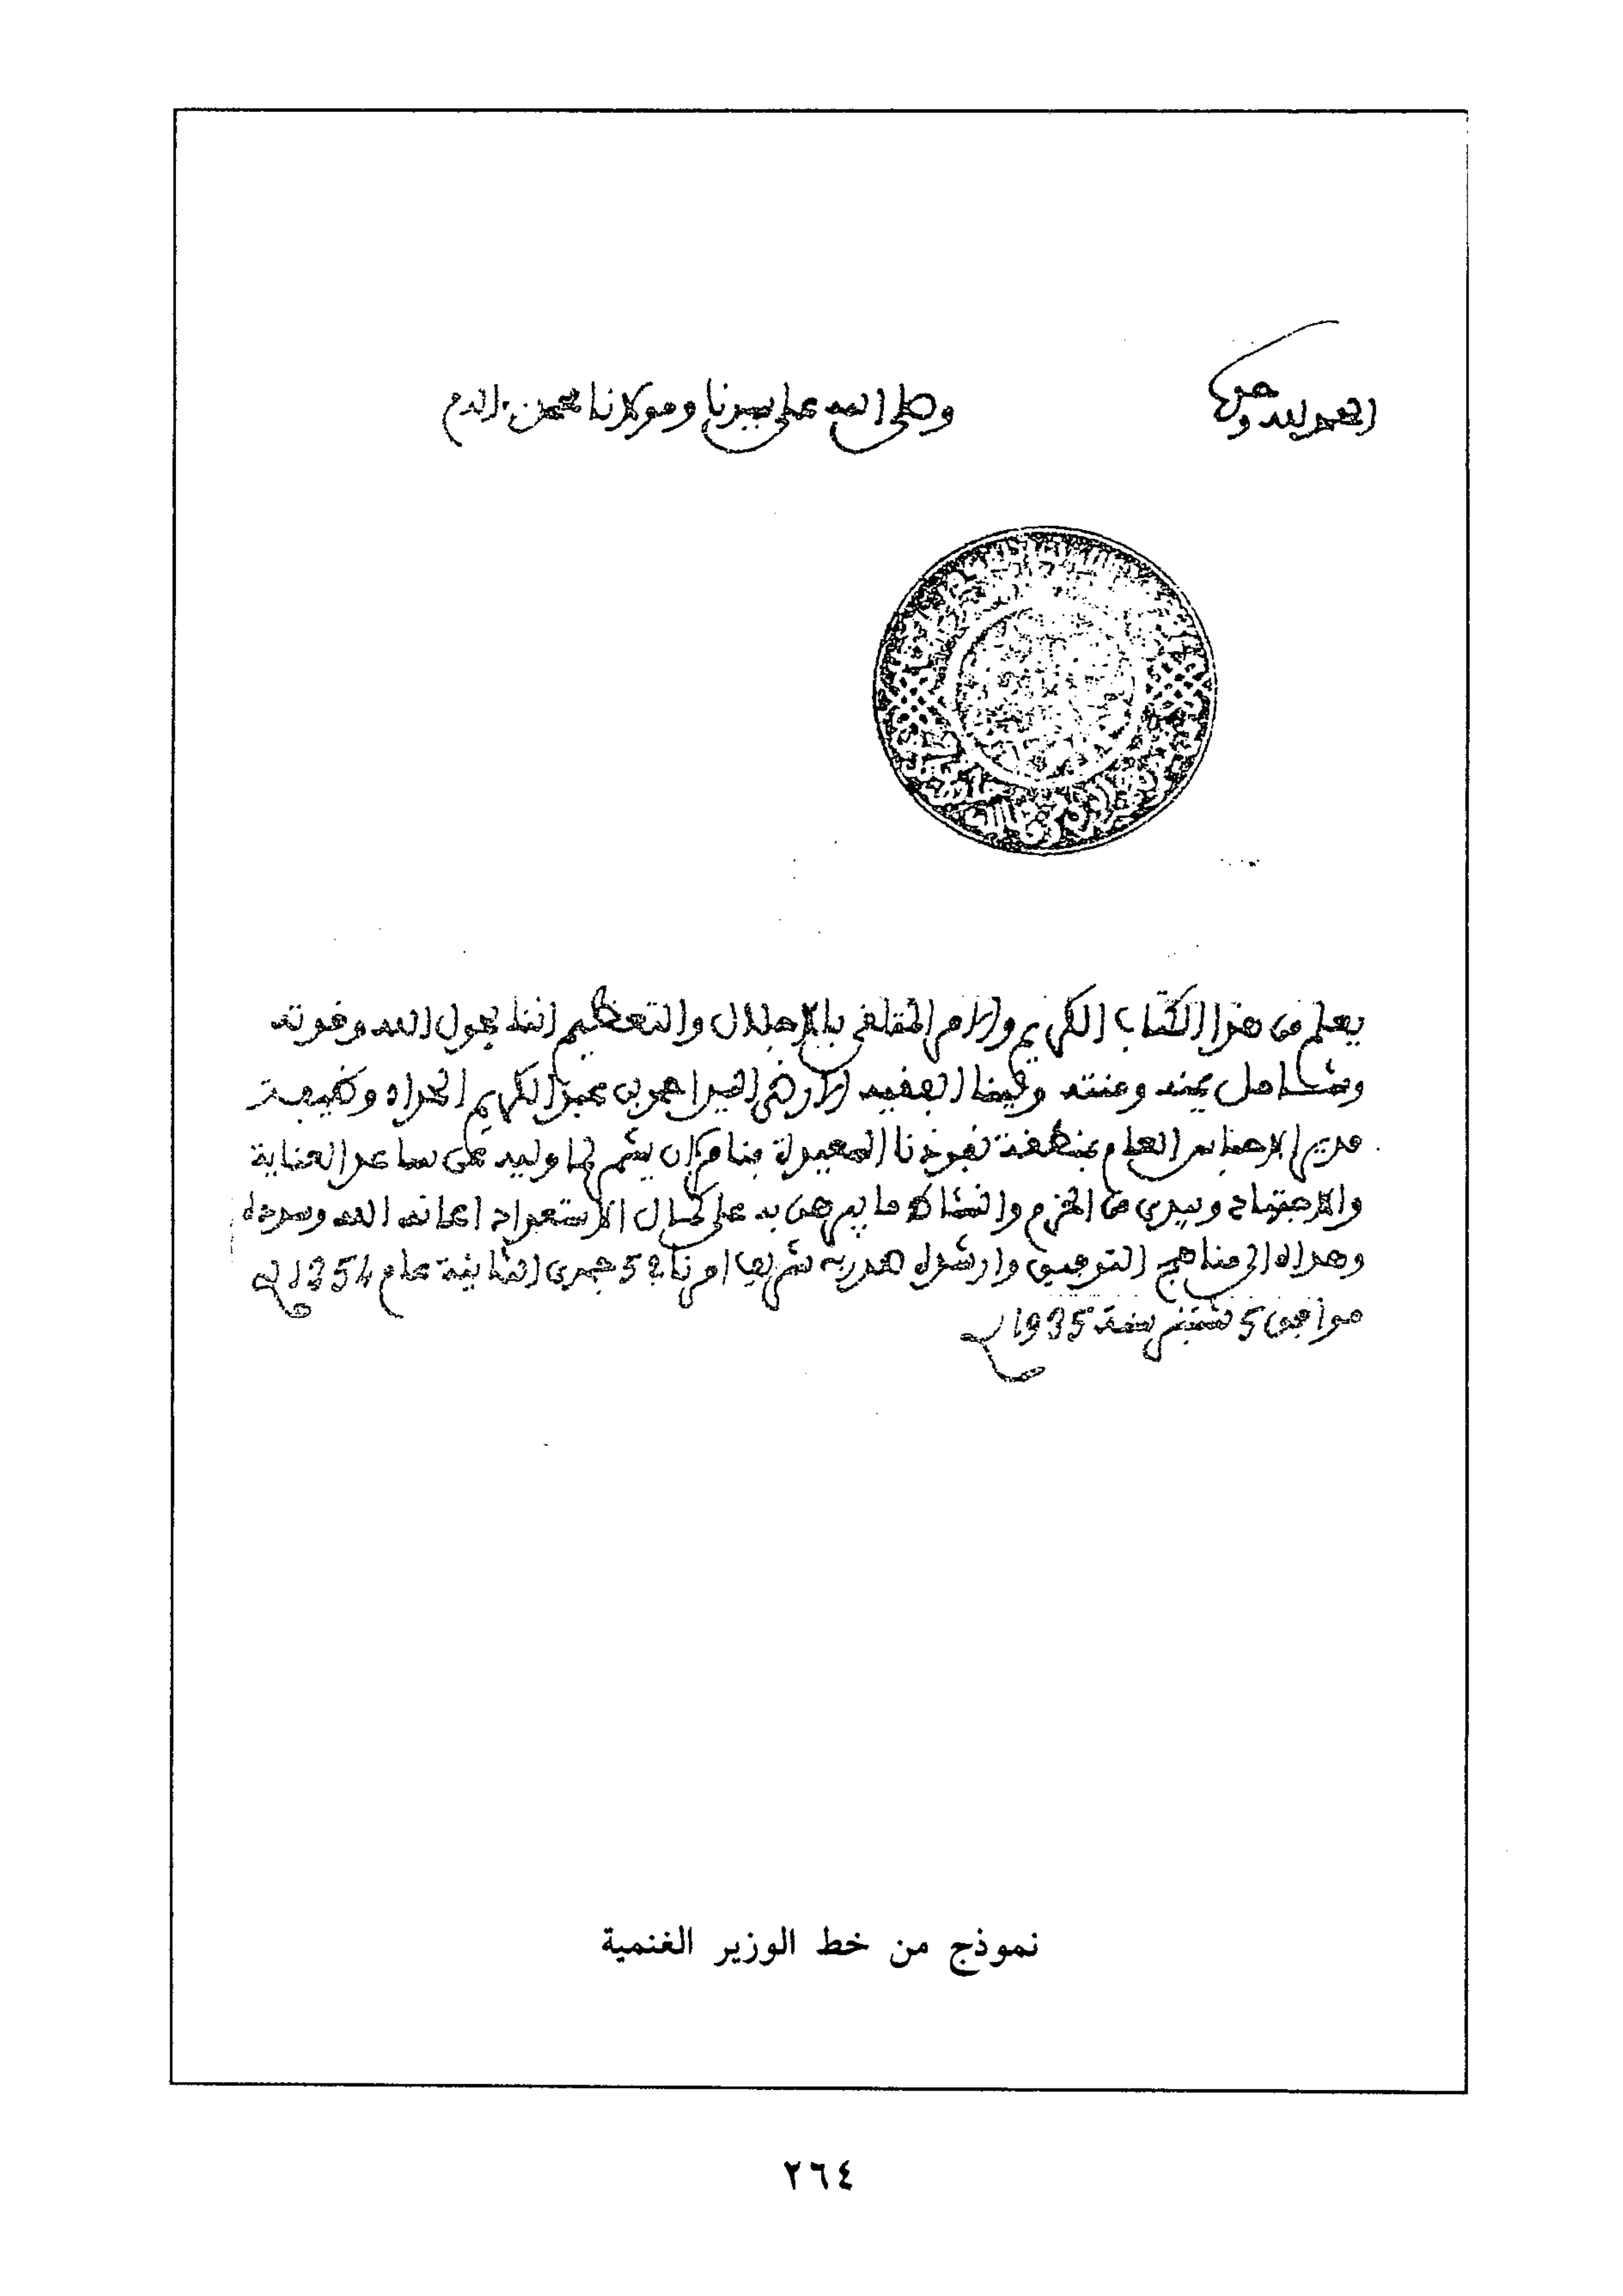 الحمد لله وحده
وصلى الله على سيدنا ومولانا محمد وآله
يعلم من هذا الكتاب الكريم والامر المتلقى بالاجلال والتعظيم اننا بحول الله وقوته
وشامل يمنه ومنته ولينا الفقيه الارضى السيد احمد بن عبد الكريم الحداد وظيفة
مدير الاحباس العام بمنطقة نفوذنا السعيدة بنامر ان يشمر لما وليه عن ساعد العناية
والاجتهاد ويبدي من الحزم والنشاط ما يبرهن به على كمال الاستعداد اعانه الله وسدده
وهداه الى مناهج التوفيق وارشده صدر به شريف امرنا في 5 جمدى الثانية عام 1354
موافق 5 شتنبر سنة 1935
نموذج من خط الوزير الغنمية
٢٦٤